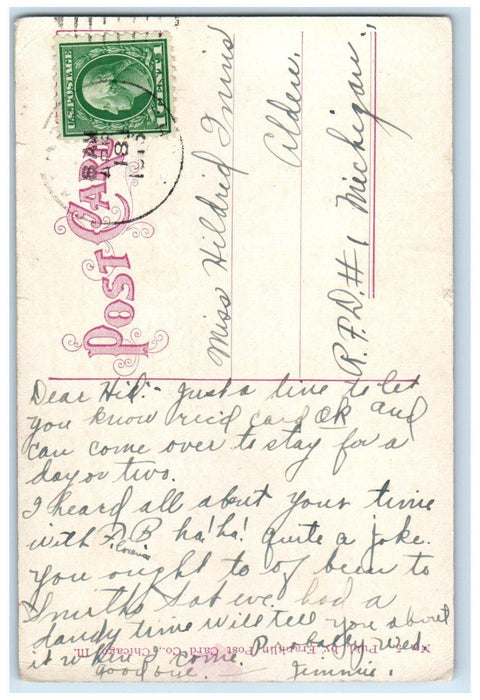 U.S. POSTAGE
1 CENT 1
8 AM
18
1913
POST CARD
Miss Hildred Innis
Alden.
R.F.D. #1 Michigan.
Dear Hil:- Just a line to let
you know rec'd card OK and
can come over to stay for a
day or two.
I heard all about your time
with F.B ha! ha! quite a joke.
Florence
You ought to of been to
Smiths Sat eve. had a
dandy time will tell you about
it when I come. Probably Wed.
good bye. Jimmie.
Pub. by Franklin Post Card Co., Chicago, Ill.